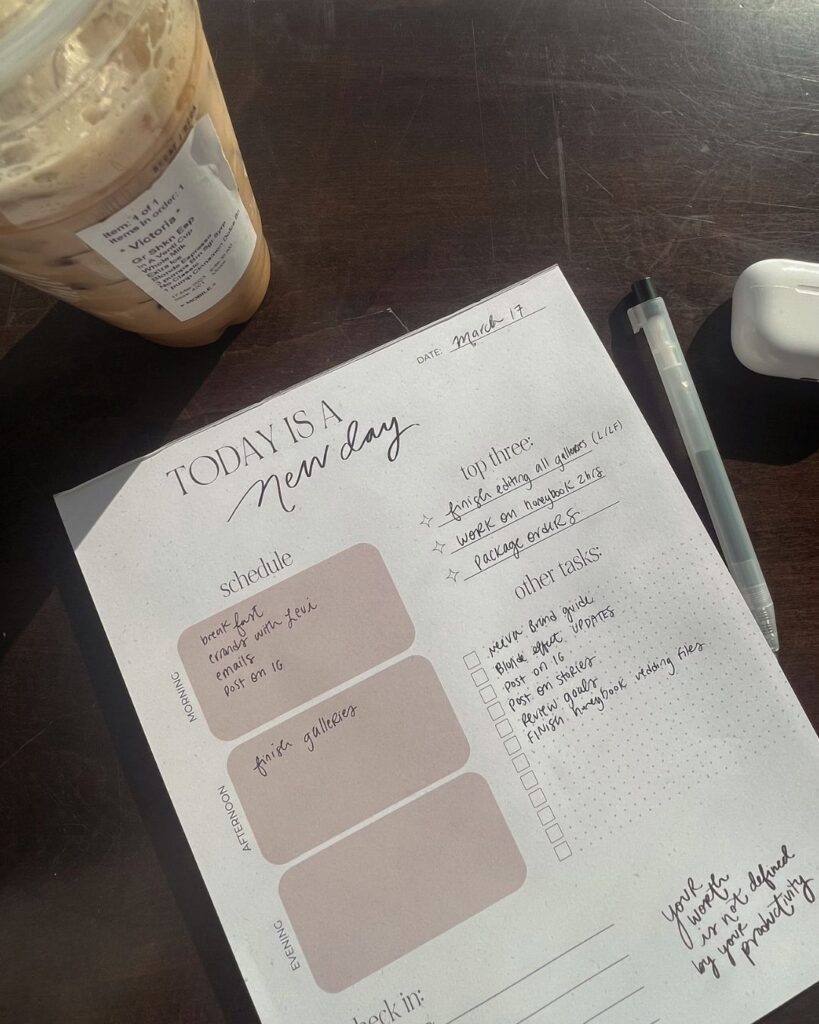 Item: 1 of 1
Items in order: 1
* Victoria *
Gr Shkn Esp
In A Venti Cup
Extra Ice
Whole Milk
Blonde Espresso
No Classic
1 pump Cinnamon Dolce
> MOBILE <
DATE: March 17
TODAY IS A
new day
top three:
finish editing all galleries (L/LF)
WORK on honeybook 2hrs
package ordeRS
schedule
MORNING
breakfast
errands with Levi
emails
Post on IG
AFTERNOON
finish galleries
EVENING
other tasks:
Brand guide
Blonde effect UPDATES
Post on IG
Post on Stories
Review goals
FINISH honeybook wedding files
your
worth
is not defined
by your
productivity
heck in: